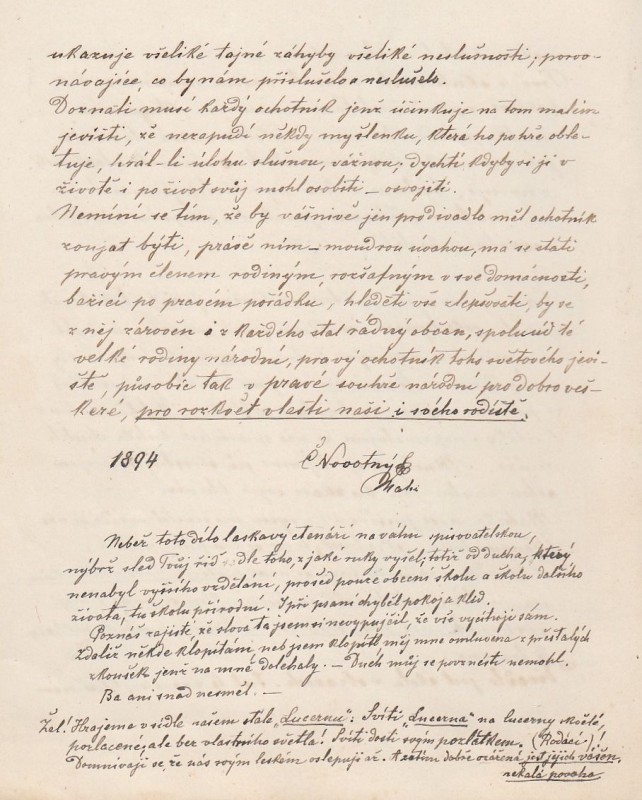 ukazuje všeliké tajné záhyby všeliké neslušnosti; porov-
návajíce, co by nám příslušelo a neslušelo.
Doznati musí každý ochotník jenž účinkuje na tom malém
jevišti, že nezapudí někdy myšlenku, která ho pohře oble-
tuje, hrál-li úlohu slušnou, vážnou; dychtí kdyby si ji v
životě i po život svůj mohl osobiti – osvojiti.
Nemíní se tím, že by vášnivě jen pro divadlo měl ochotník
zaujat býti, prášě ním – moudrou úvahou, má se státi
pravým členem rodinným, rozšafným v své domácnosti,
bažící po pravém pořádku, hleděti vše zlepšovati, by se
z něj zároveň i z každého stal řádný občan, spoluúd té
velké rodiny národní, pravý ochotník toho světového jevi-
ště, působíc tak v pravé souhře národní pro dobro veš-
keré, pro rozkvět vlasti naší i svého rodiště.
1894 Č Novotný
Neber toto dílo laskavý čtenáři na váhu spisovatelskou,
nýbrž sled Tvůj řiď dle toho, z jaké ruky vyšel; totiž od ducha, který
nenabyl vyššího vzdělání, prošed pouze obecní školu a školu dalšího
života, tu školu přírodní. I při psaní chyběl pokoj a klid.
Poznáš zajisté, že slova ta jsem si nevypůjčil, že vše vycituji sám.
Zdaliž někde klopítám, neb jsem klopýtl, můj mne omluvena z přestálých
zkoušek jenž na mně doléhaly. – Duch můj se povznésti nemohl.
Ba ani snad nesměl. –
Žel! Hrajeme v sídle našem stále „Lucernu": Svítí „Lucerna" na Lucerny skvělé,
pozlacené, ale bez vlastního světla! Svítí dosti svým pozlátkem. (Rodáci)!
Domnívají se, že nás svým leskem oslepují. A zatím dobře ozářená jest jejich vášeň,
nekalá povaha